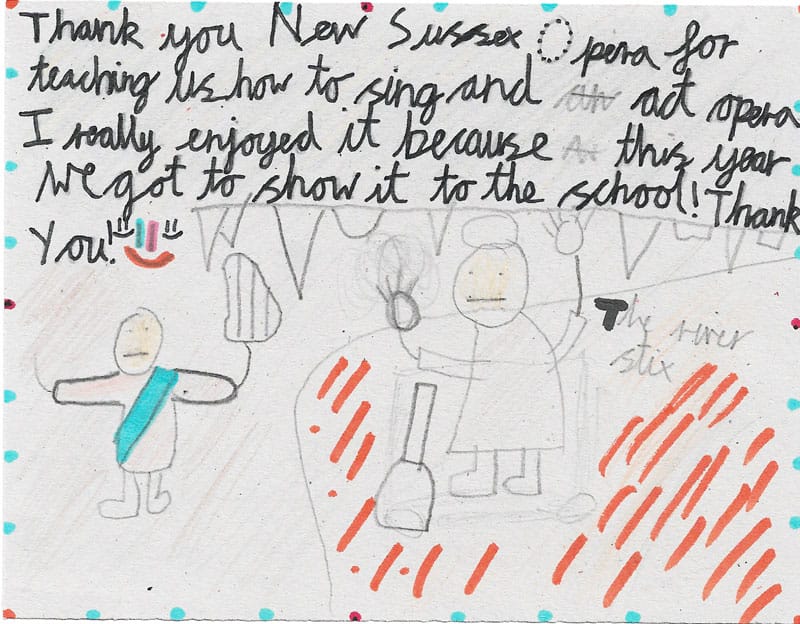 Thank you New Sussex Opera for
teaching us how to sing and act opera
I really enjoyed it because this year
we got to show it to the school! Thank
You!
The river
stix